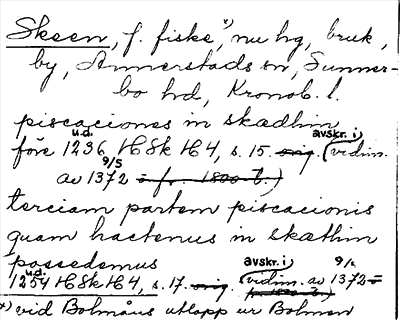 Skeen, f. fiske x), nu hg, bruk,
by, Annerstads sn, Sunner-
bo hd, Kronob. l.
piscaciones in skædhim
före u.d. 1236 HSH H4, s. 15. avskr. i) (vidim.
av 9/5 1372
terciam partem piscacionis
quam hactenus in skæthim
possedemus
u.d. 1254 HSH H4, s. 17. avskr. i) (vidim. av 9/5 1372
x) vid Bolmåns utlopp ur Bolmen